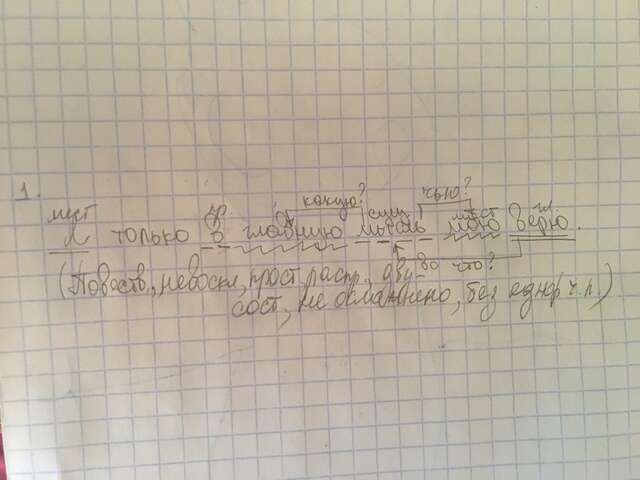 1.
какую? чью?
мест пр сущ мест гл
Я только в главную мысль мою верю.
во что?
(Повеств., невоскл, прост, распр, дву-
сост, не осложнено, без однор ч.п.)